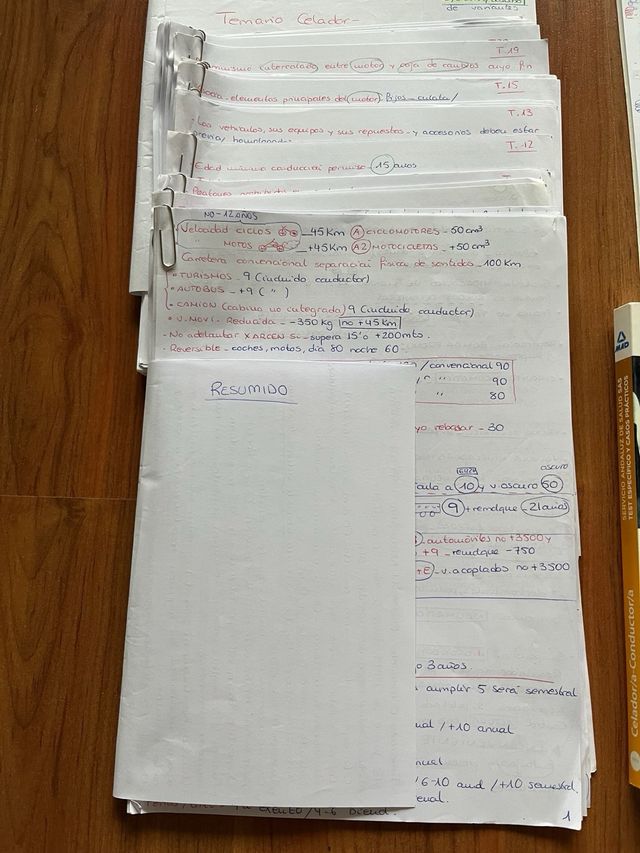 de variantes
Temario Celador-
T.19
intercalado entre motor y caja de cambios cuyo fin
T.15
elementos principales del motor. Fijos-culata/
T.13
Los vehículos, sus equipos y sus repuestos-y accesorios deben estar
T.12
Edad mínima conducción permiso-15 años
NO-12 AÑOS
Velocidad CICLOS -45Km (A) CICLOMOTORES-50cm³
" MOTOS +45Km (A2) MOTOCICLETAS-+50cm³
Carretera convencional separación física de sentidos-100Km
•TURISMOS-9 (incluido conductor)
•AUTOBUS-+9 ( " )
•CAMION (cabina no integrada) 9 (incluido conductor)
•V.MOVI. Reducida--350kg no +45km
-No adelantar X ARCEN Si-supera 15"o +200mts.
-Reversible-coches, motos, día 80 noche 60
/convencional 90
" 90
" 80
RESUMIDO
rebasar-30
OSCURO
a 10 y v.oscuro 60
9 +remolque-21años
-automóviles no +3500 y
+9-remolque-750
+E-v.acoplados no +3500
3 años
cumplir 5 será semestral
/+10 anual
6-10 anual /+10 semestral.
1
SERVICIO ANDALUZ DE SALUD SAS
TEST ESPECÍFICO Y CASOS PRÁCTICOS
Celador/a-Conductor/a